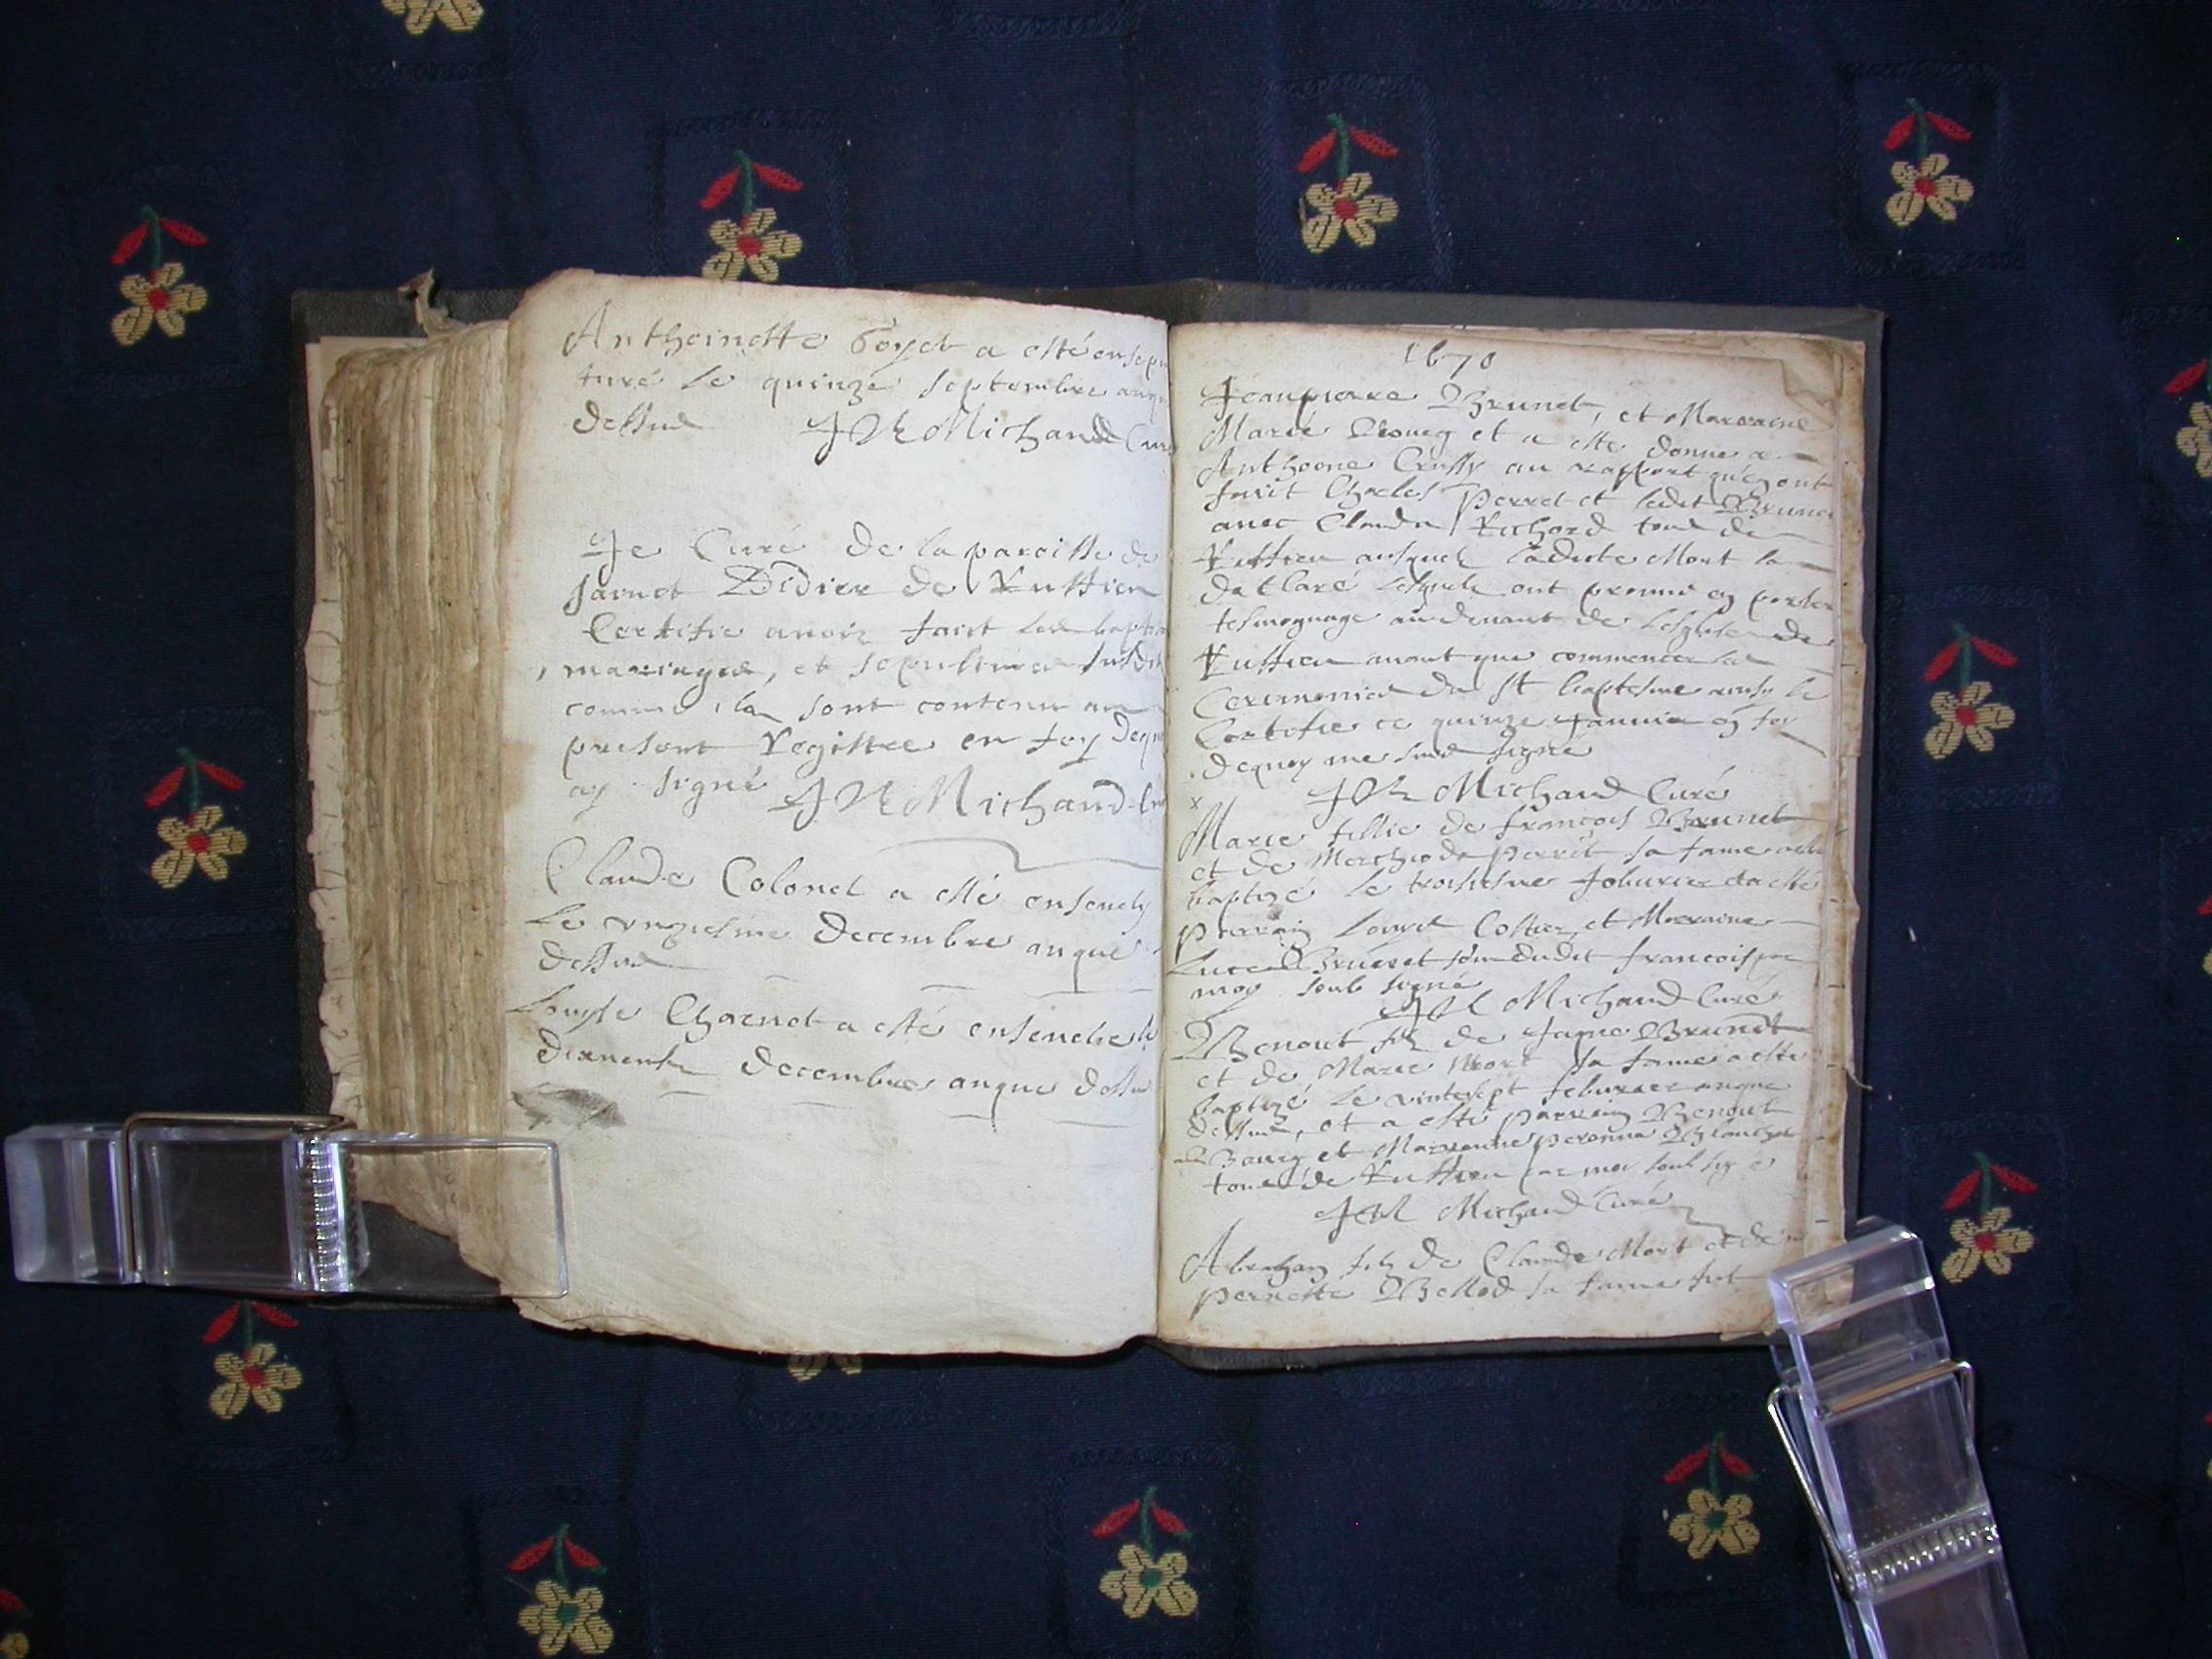 Anthoinette Goyet a esté ensepul
turé le quinze septembre anque
dessus JR Michaud Curé
Je Curé de la paroisse de
sainct Didier de Ruffieu
Certifie avoir faict les baptes
mariages, et sepultures susdit
comme ilz sont contenu au
present Registre en foy dequoy
ay signé JR Michaud Curé
Claude Colonel a esté ensevely
le unziesme decembre anque
dessus
Louyse Charnel a esté ensevelie le
decembre anque dessus
1670
Jeanpierre Brunet, et Marraine
Marie et a esté donné a
Anthoene Crussy au rapport qu'en ont
faict Charles Perret et ledit Brunet
avec Claude Richord tous de
Ruffieu ausquelz ladicte Mont la
declaré lesquels ont promis en porter
tesmognage audevant de lesglise de
Ruffieu avant que commencer les
Ceremonies du St baptesme ainsy le
Certifie ce quinze Janvier en foy
dequoy me suis signé
JR Michaud Curé
x
Marie fillie de françois Brunet
et de perret sa fame a esté
baptizé le troisiesme feburier et a esté
parrain Louys Costier et Marraine
Luce Brunet dudit francois par
moy soub signé
JR Michaud Curé
Benoit filz de Jaque Brunet
et de Marie Mort sa fame a esté
baptizé le vintesept feburier anque
dessus, et a esté parrain Benoit
Bourg et Marraine peronne Blanchet
tous de Ruffieu par moy soub signé
JR Michaud Curé
Abraham filz de Claude Mort et de
pernette Bellod sa fame fut